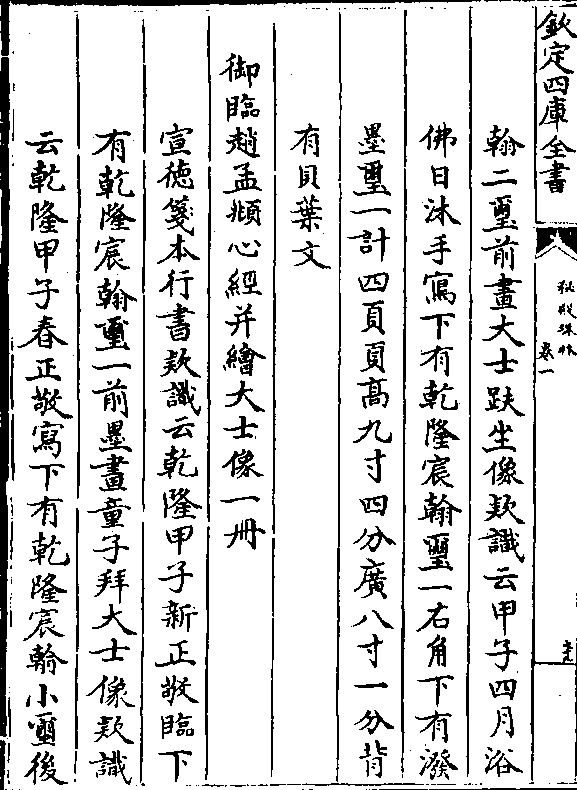 欽定四庫全書
秘殿珠林
卷一
翰二璽前畫大士趺坐像款識云甲子四月浴
佛日沐手寫下有乾隆宸翰璽一右角下有潑
墨璽一計四頁頁高九寸四分廣八寸一分背
有貝葉文
御臨趙孟頫心經并繪大士像一冊
宣徳箋本行書款識云乾隆甲子新正敬臨下
有乾隆宸翰璽一前墨畫童子拜大士像款識
云乾隆甲子春正敬寫下有乾隆宸翰小璽後